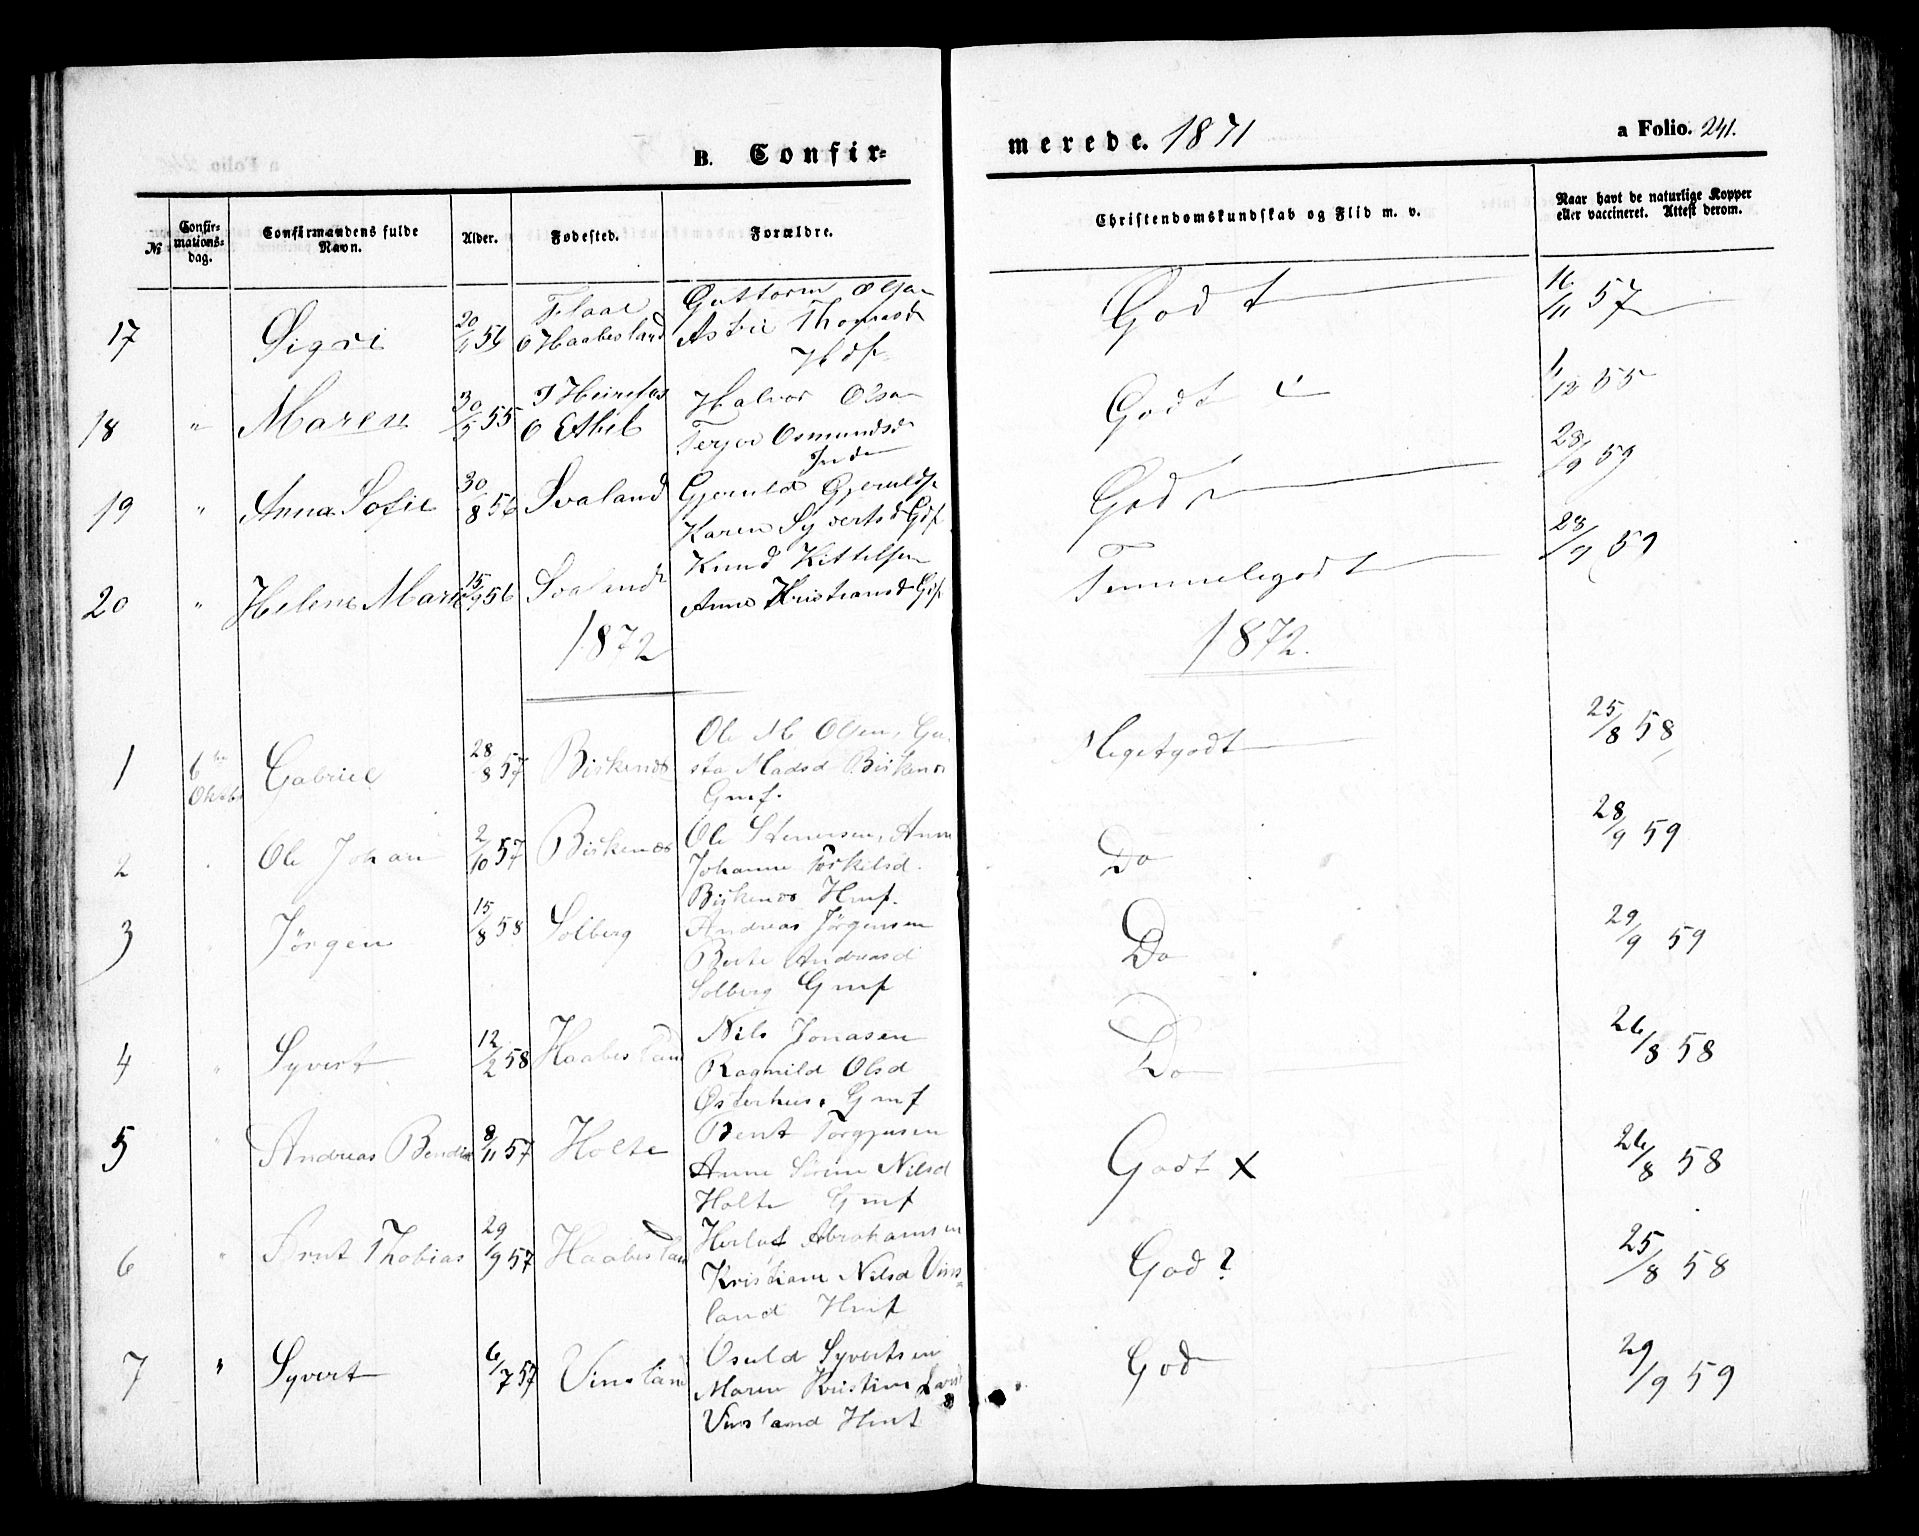 B. Confir-
merede. 1871
a Folio. 241.
№
Confir-
mations-
dag.
Confirmandens fulde
Navn.
Alder.
Fødested.
Forældre.
Christendomskundskab og Flid m. v.
Naar havt de naturlige Kopper
eller vaccineret. Attest derom.
17 Sigri 56 Haabesland
Astri
Godt 16/11 57
18 " Maren 30/5 55
Halvor Olsen
Osmundsd
Godt 55
19 " Anna Sofie 30/8 56 Svaland
Karen Syvertsd Gdf
God 28/9 59
20 " Helene Marie 15/9 56 Svaland
Knud Kittelsen
Anne Kristiansd Gdf
Temmeligodt 28/9 59
1872
1872.
1 6te Oktobr Gabriel 28/8 57 Birkenæs
Ole M Olsen, Gu-
Madsd Birkenæs
Gmf.
Megetgodt 25/8 58
2 Ole Johan 2/10 57 Birkenæs
Ole Stenersen, Anne
Johanne Torkilsd.
Birkenæs Hmf.
Do 28/9 59
3 " Jörgen 15/8 58 Solberg
Andreas Jörgensen
Berte Andreasd
Solberg Gmf
Do 29/9 59
4 " Syvert 12/2 58 Haabesland
Nils Jonasen
Ragnild Olsd
Österhus, Gmf
Do 26/8 58
5 " Andreas 8/11 57 Holte
Bent Torgjusen
Anne Sirine Nilsd
Holte Gmf
Godt x 26/8 58
6 " Brnt Thobias 29/9 57 Haabesland
Abrahamsen
Kristiane Nilsd Vins-
land Hmf
God? 25/8 58
7 " Syvert 6/7 57 Vinsland
Osuld Syvertsen
Maren Kristine
Vinsland Hmf
God 29/9 59